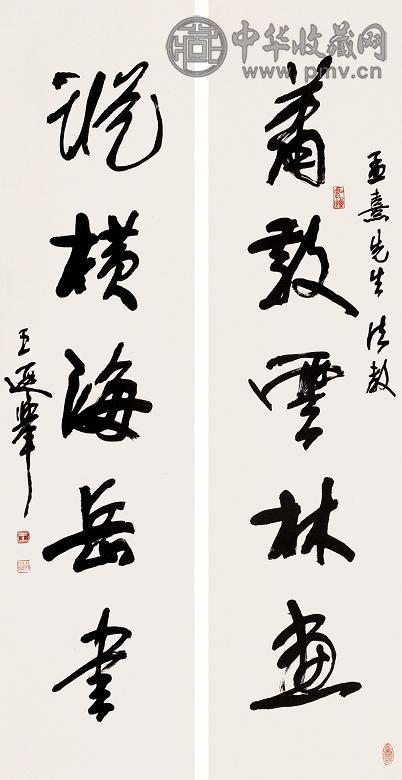 中华收藏网
www.pmv.cn
孟熹先生法教
萧散云林画
纵横海岳书
王遐举